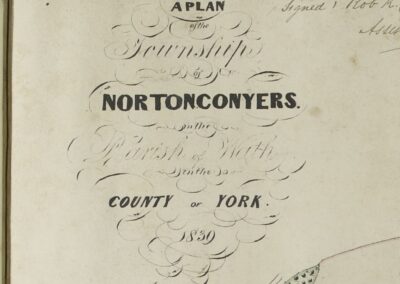 A PLAN
of the
Township
of
NORTONCONYERS.
in the
Parish of Wath
in the
COUNTY OF YORK.
1839
Signed; Rob R.
Asses